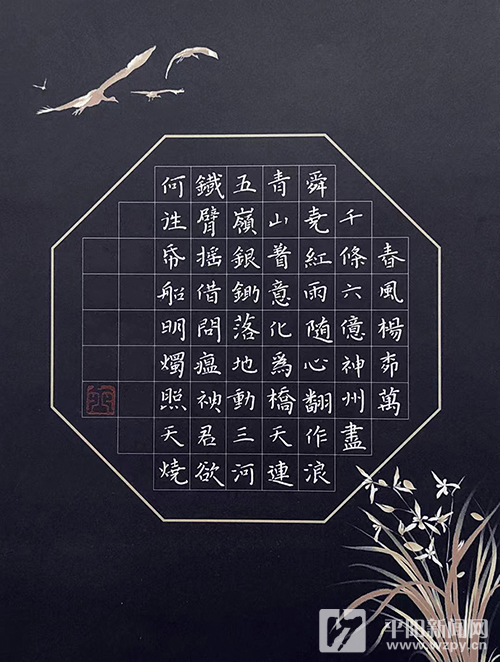 春風楊柳萬
千條六億神州盡
舜尭紅雨随心翻作浪
青山着意化爲橋天連
五嶺銀鋤落地動三河
鐵臂摇借問瘟君欲
何往帋船明燭照天燒
平阳新闻网
www.wzpy.cn